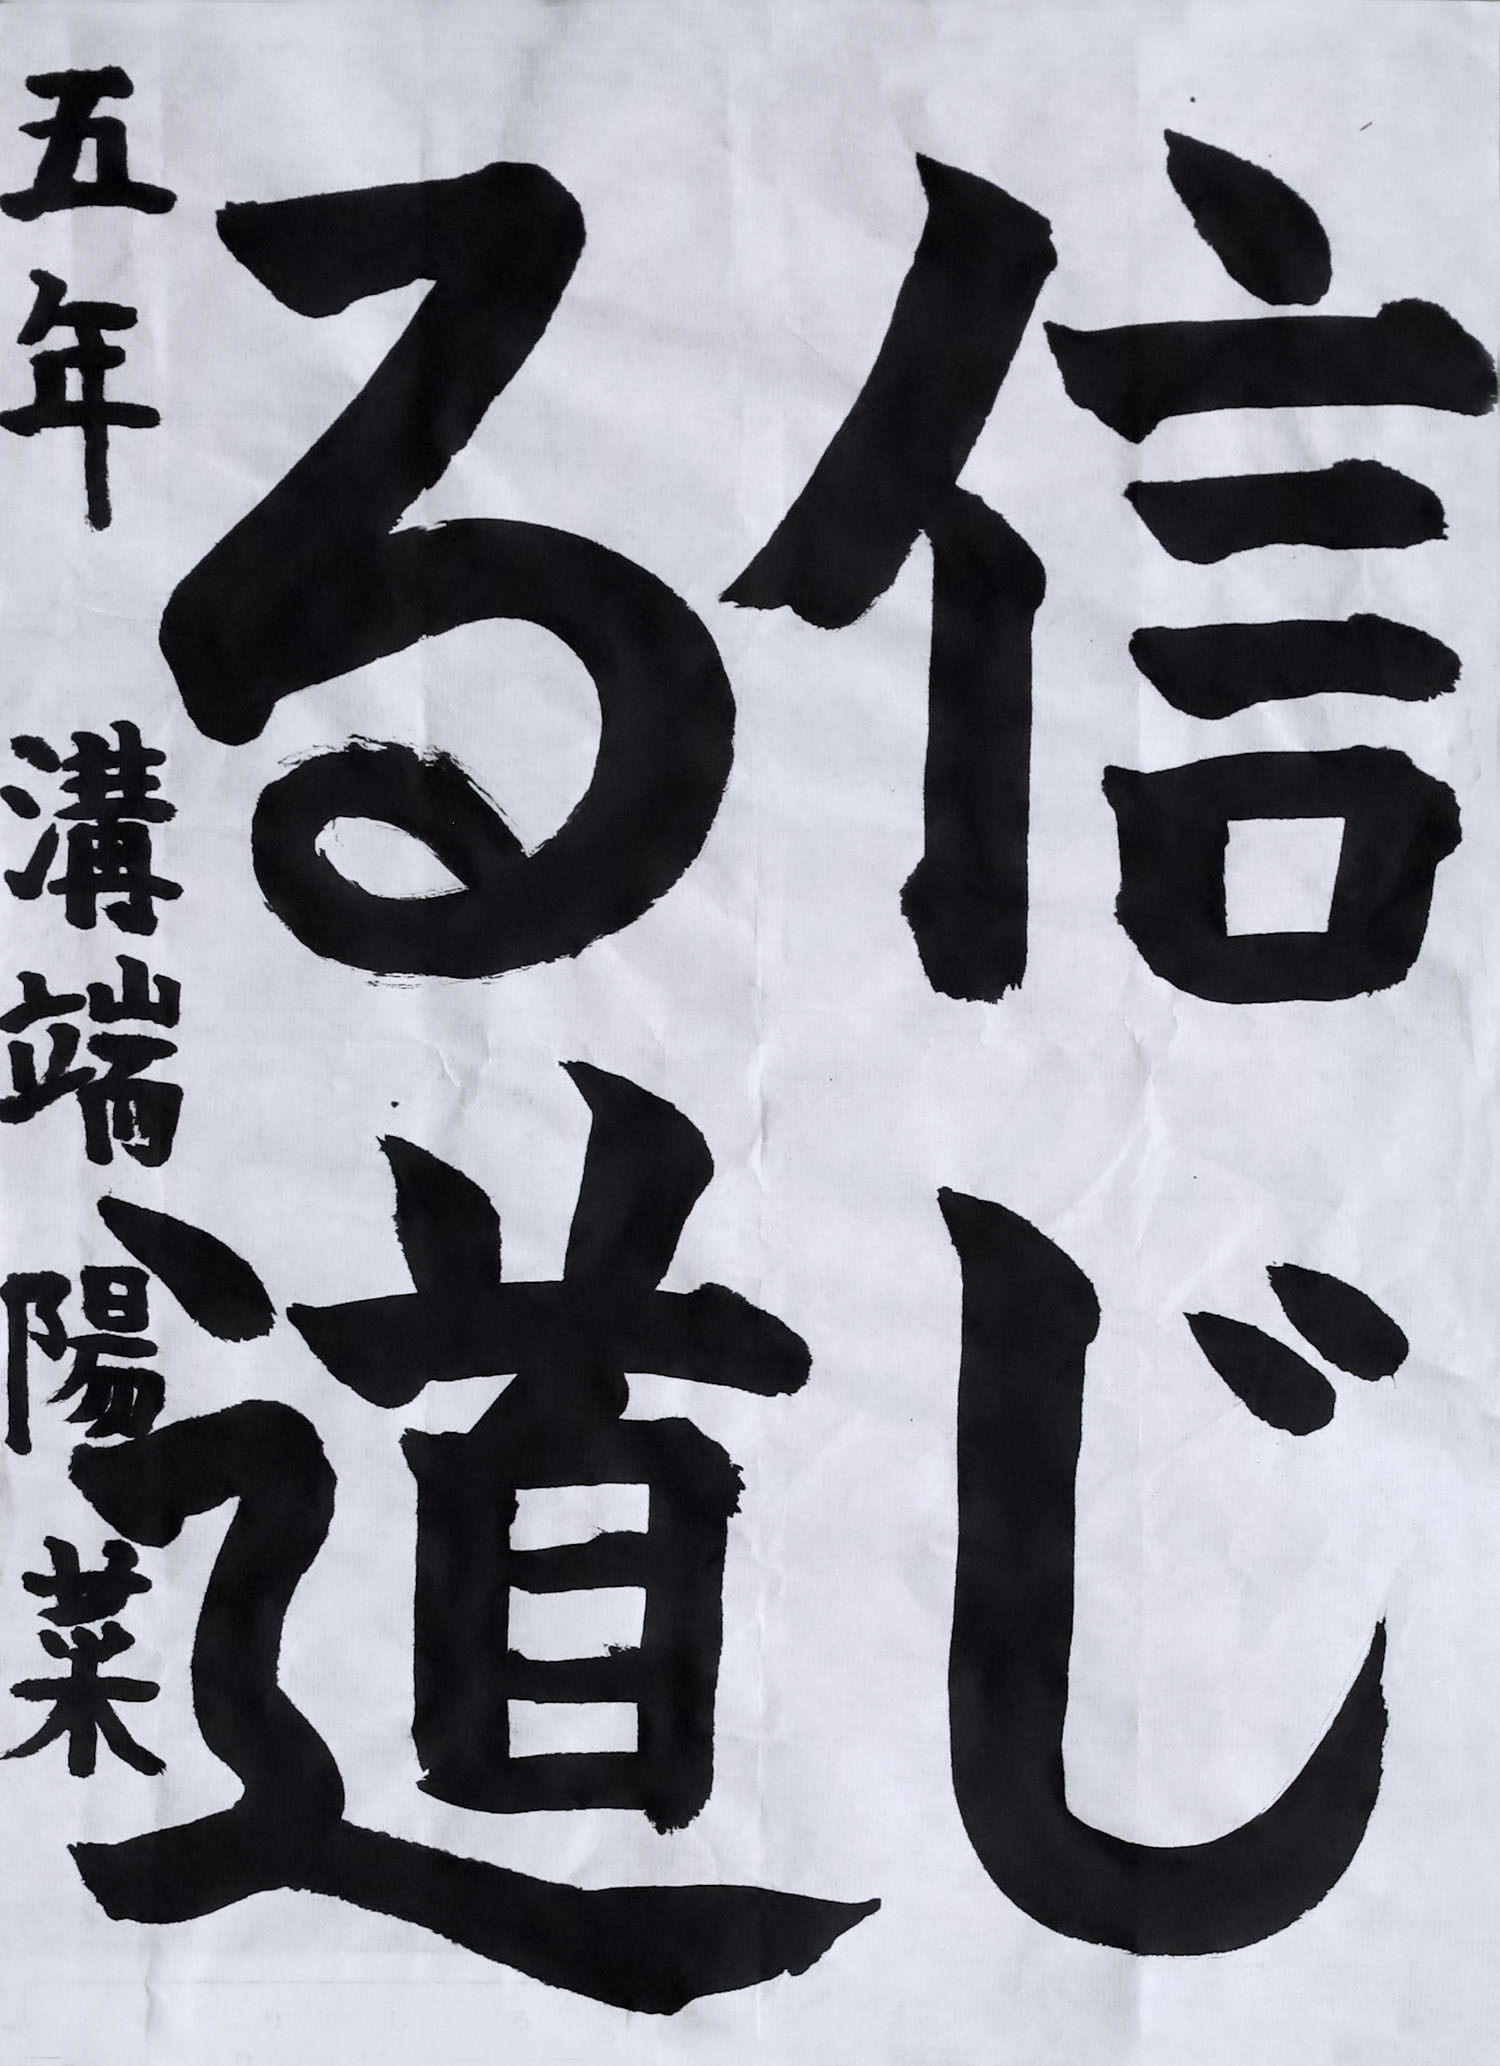 信じ
る道
五年 溝端陽菜